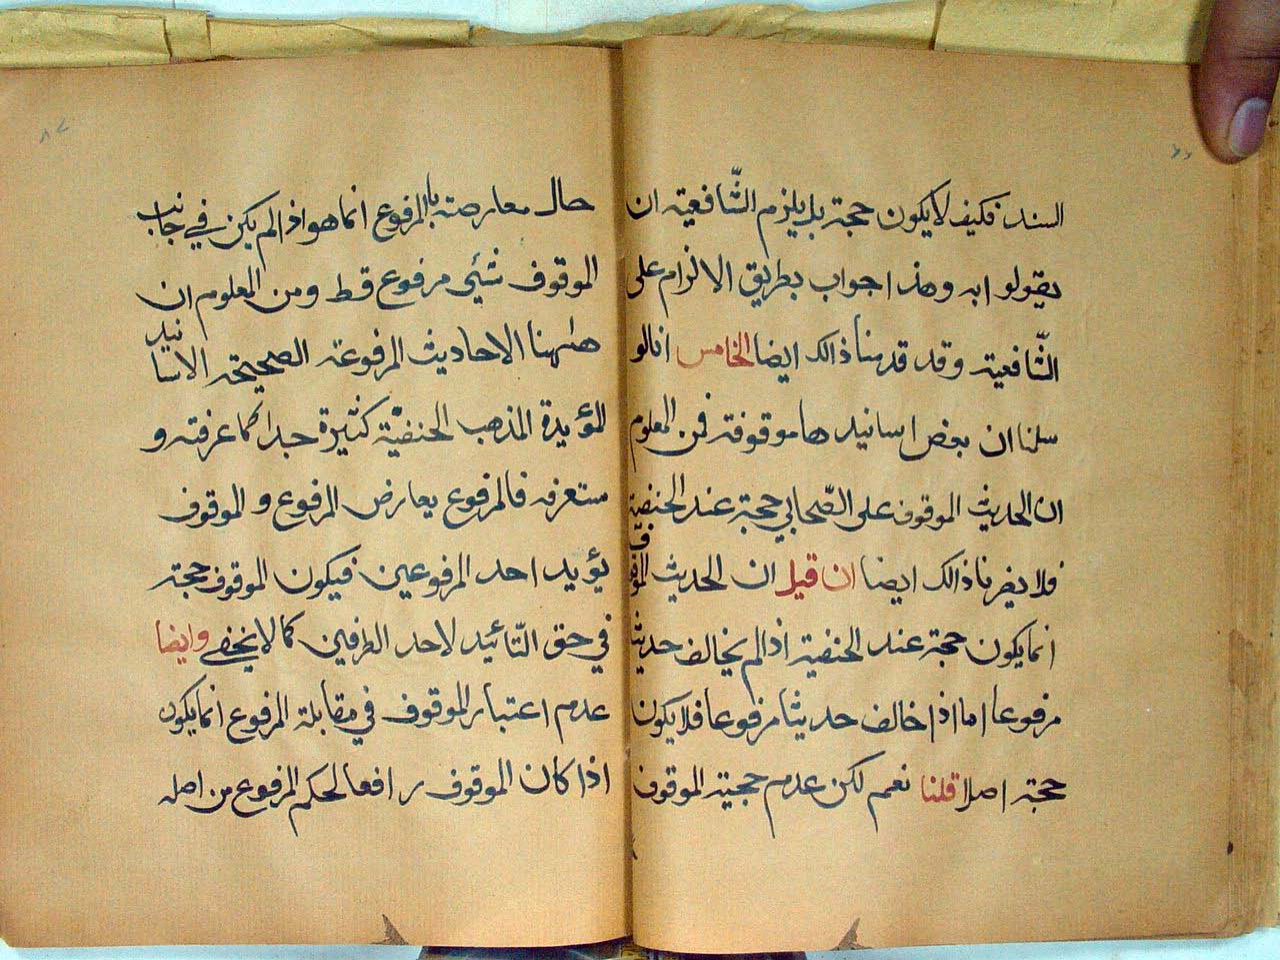 السند فكيف لا يكون حجة بل يلزم الشّافعية ان
يقولوا به وهذا جواب بطريق الالزام على
الشّافعية وقد قدمنا ذالك ايضا الخامس انا لو
سلمنا ان بعض اسانيدها موقوفة فمن المعلوم
ان الحديث الموقوف على الصّحابي حجة عند الحنفية
فلا يضرنا ذالك ايضا ان قيل ان الحديث الموقوف
انما يكون حجة عند الحنفية اذا لم يخالف حديثا
مرفوعا اما اذا خالف حديثا مرفوعا فلا يكون
حجة اصلا قلنا نعم لكن عدم حجية الموقوف
حال معارضته بالمرفوع انما هو اذا لم يكن في جانب
الموقوف شئي مرفوع قط ومن المعلوم ان
ههنا الاحاديث المرفوعة الصحيحة الاسانيد
المؤيدة المذهب الحنفيّة كثيرة جدا كما عرفته و
ستعرفه فالمرفوع يعارض المرفوع و الموقوف
يؤيد احد المرفوعين فيكون الموقوف حجة
في حق التّائيد لاحد الطرفين كما لا يخفى وايضا
عدم اعتبار الموقوف في مقابلة المرفوع انما يكون
اذا كان الموقوف رافعا لحكم المرفوع من اصله